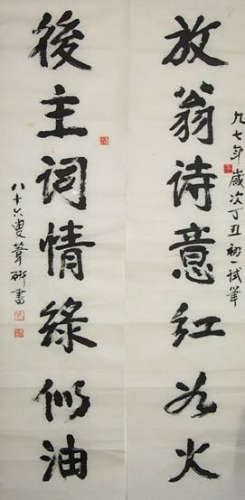 放翁诗意红如火
九七年歲次丁丑初一試筆
後主词情綠似油
八十六叟肇研書